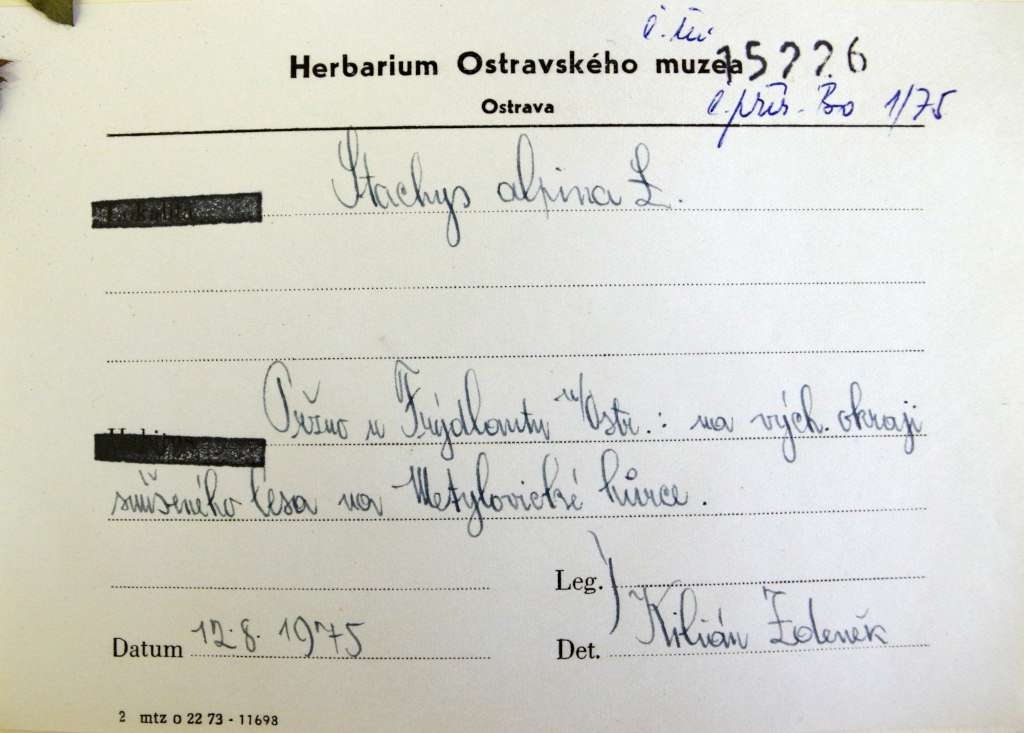 č. inv.
Herbarium Ostravského muzea 15226
Ostrava
č. přír. Bo 1/75
Stachys alpina L.
Pržno u Frýdlantu n/Ostr.: na vých. okraji
smíšeného lesa na Metylovické hůrce.
Leg.
Datum 12.8. 1975
Det. Kilián Zdeněk
2 mtz o 22 73 - 11698